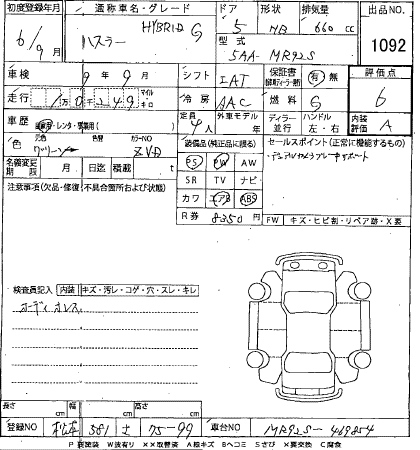 初度登録年月 通称車名・グレード ドア 形状 排気量 出品NO.
6/9月 ハスラー HYBRID G 5 HB 660 cc 1092
型式 5AA-MR92S
車検 9年9月 シフト IAT 保証書 有 無 評価点
走行 マイル キロ 冷房 AAC 燃料 G 6
車歴 レンタ 定員 4人 外車モデル 年 ディーラー 並行 ハンドル 左・右 内装評価 A
色 元色 グリーン 色替 カラーNO ZVD 装備品(純正品に限る) セールスポイント(正常に機能するもの)
PS PW AW デュアルカメラブレーキサポート
名義変更期限 月 日迄 積載 t SR TV ナビ
注意事項(欠品・修復・不具合箇所および状態) カワ エアB ABS
R券 8350円 FW キズ・ヒビ割・リペア跡・X要
検査員記入 内装 キズ・汚レ・コゲ・穴・スレ・キレ
オーディオレス
長さ cm 幅 cm 高さ cm
登録NO 松本 581 さ 75-99 車台NO MR92S-469854
P 要塗装 W 波有り XX取替済 A 線キズ B ヘコミ S さび X 要交換 C 腐食